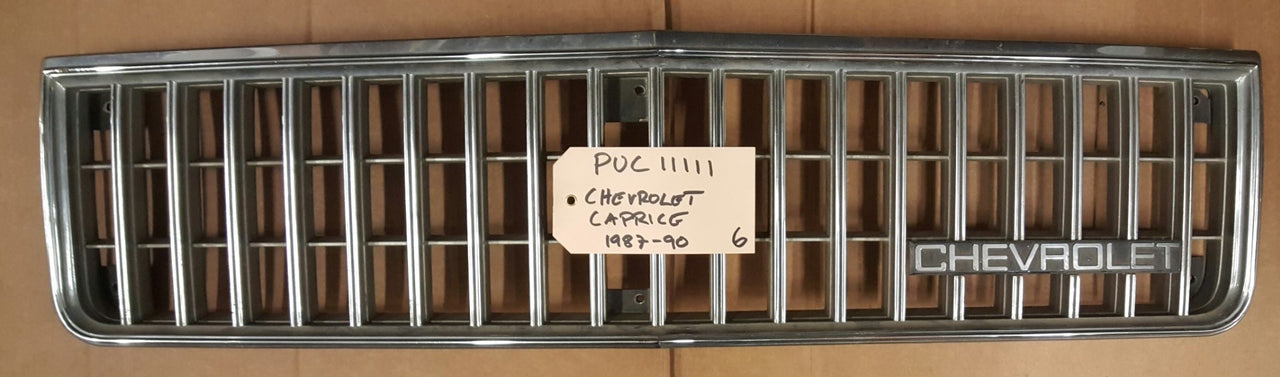 PUC 11111
CHEVROLET
CAPRICE
1987-90 6
CHEVROLET